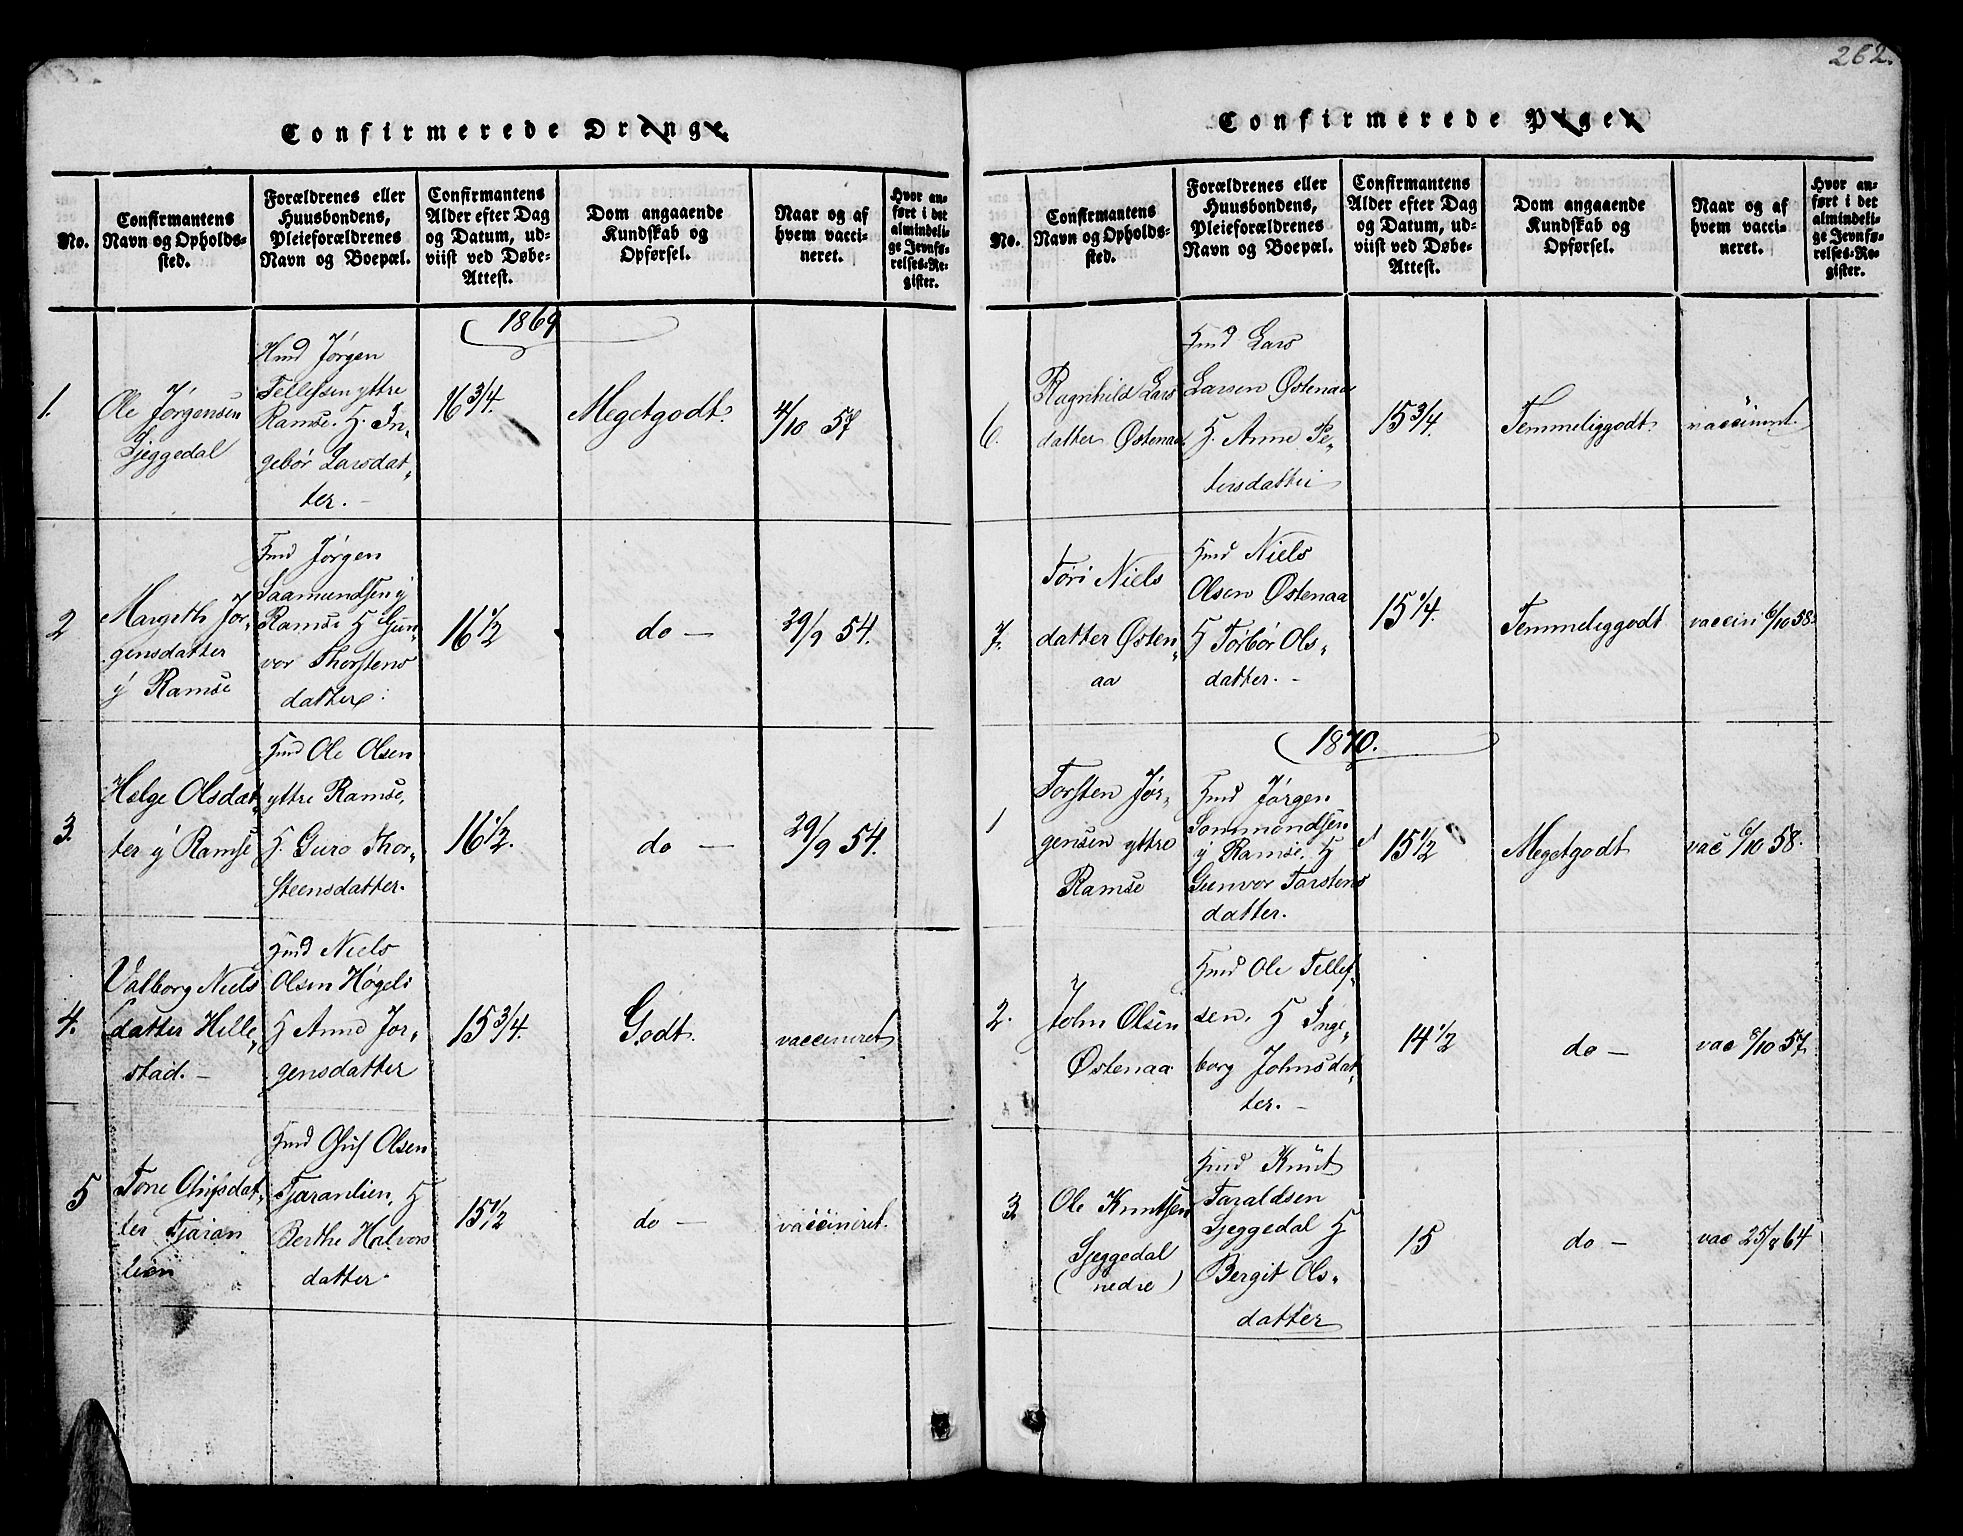 262.
Confirmerede Drenge.
No.
Confirmantens
Navn og Opholds-
sted.
Forældrenes eller
Huusbondens,
Pleieforældrenes
Navn og Boepæl.
Confirmantens
Alder efter Dag
og Datum, ud-
viist ved Døbe-
Attest.
Dom angaaende
Kundskab og
Opførsel.
Naar og af
hvem vacci-
neret.
Hvor an-
ført i det
almindeli-
ge Jevnfø-
relses-Re-
gister.
1869
1.
Ole Jørgensen
Sjeggedal
Hmd Jørgen
Tellefsen yttre
Ramse. H. In„
gebør Larsdat„
ter. –
16 3/4.
Megetgodt.
4/10 57
2
Margeth Jør„
gensdatter
y Ramse
Hmd Jørgen
Saamundsen y
Ramse H Gun„
vor Thorstens
datter.
16 1/2
do —
29/9 54.
3.
Helge Olsdat„
ter y Ramse
Hmd Ole Olsen
yttre Ramse,
H. Guro Thor„
steensdatter.
16 1/2.
do —
29/9 54.
4.
Valborg Niels
datter Hille„
stad. –
Hmd Niels
Olsen Høgeli
H Anne Jør„
gensdatter
15 3/4.
Godt.
vaccineret
5
Tone datter
ter Tjaran
lien
Hmd Olsen
Tjaranlien, H
Berthe Halvors
datter.
15 1/2
do —
vaccineret.
Confirmerede Piger
No.
Confirmantens
Navn og Opholds-
sted.
Forældrenes eller
Huusbondens,
Pleieforældrenes
Navn og Boepæl.
Confirmantens
Alder efter Dag
og Datum, ud-
viist ved Døbe-
Attest.
Dom angaaende
Kundskab og
Opførsel.
Naar og af
hvem vacci-
neret.
Hvor an-
ført i det
almindeli-
ge Jevnfø-
relses-Re-
gister.
6.
Ragnhild Lars
datter Østenaa
Hmd Lars
Larsen Østenaa
H. Anne Pe„
tersdatter
15 3/4.
Temmeliggodt.
7.
Tori Niels
datter Østen„
aa
Hmd Niels
Olsen Østenaa
H Torbør Ols„
datter. –
15 1/4.
Temmeliggodt
vaccin 6/10 58.
1870.
1
Torsten Jør„
gensen yttre
Ramse
Hmd Jørgen
Sommondsen
y Ramse, H
Gunvor Tarstens
datter.
15 1/2
Megetgodt
vac 6/10 58.
2.
John Olsen
Østenaa
Hmd Ole Tellef„
sen. H Inge„
borg Johnsdat„
ter. –
14 1/2
do —
vac 8/10 57
3.
Ole Knutsen
Sjeggedal
(nedre)
Hmd Knut
Taraldsen
Sjeggedal H
Bergit Ols„
datter
15
do —
vac 25/8 64